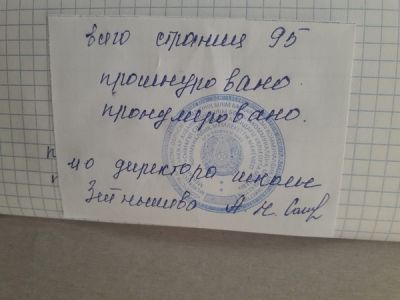 всего страниц 95
прошнуровано.
пронумеровано.
ио директора школы
А. К.